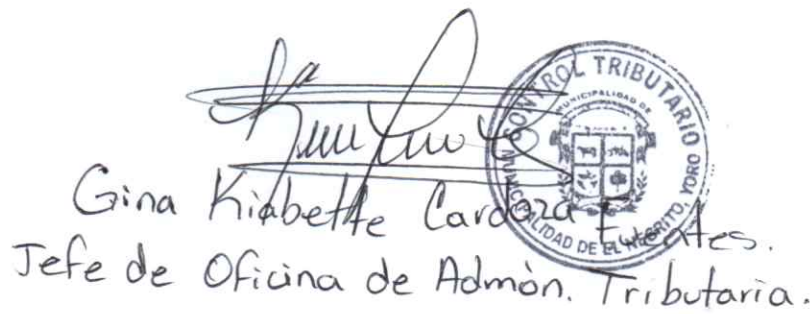 CONTROL TRIBUTARIO
MUNICIPALIDAD DE
MUNICIPALIDAD DE EL NEGRITO, YORO
Gina Kiabette Cardoza Fuentes.
Jefe de Oficina de Admòn. Tributaria.